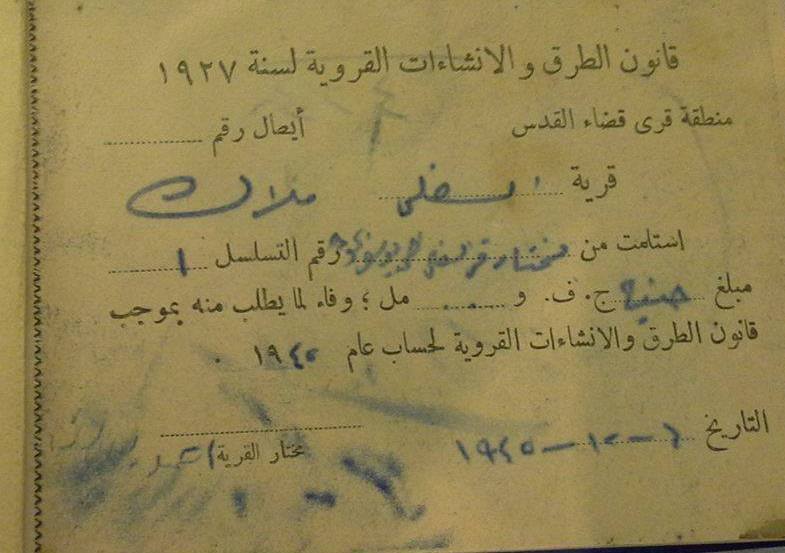 قانون الطرق و الانشاءات القروية لسنة ١٩٢٧
منطقة قرى قضاء القدس أيصال رقم
قرية السفلى ملاك
استلمت من مختار رقم التسلسل ١
مبلغ جنيه ج. ف. و مل ؛ وفاء لما يطلب منه بموجب
قانون الطرق والانشاءات القروية لحساب عام ١٩٤٥
التاريخ ١٩٤٥
مختار القرية